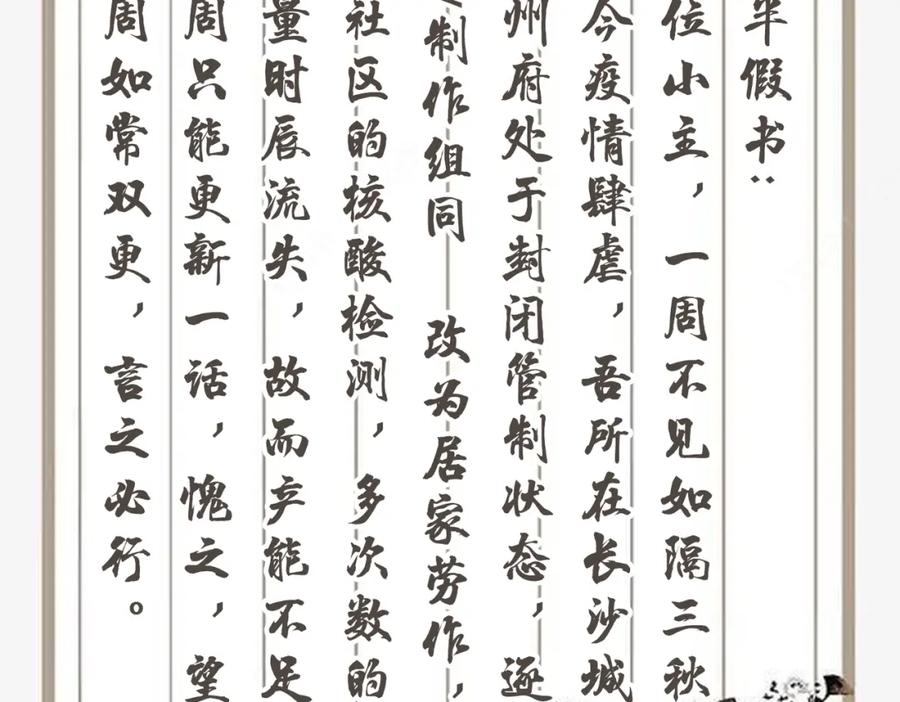 半假书：
位小主，一周不见如隔三秋
今疫情肆虐，吾所在长沙城
州府处于封闭管制状态，逐
制作组同 改为居家劳作，
社区的核酸检测，多次数的
量时辰流失，故而产能不足
周只能更新一话，愧之，望
周如常双更，言之必行。